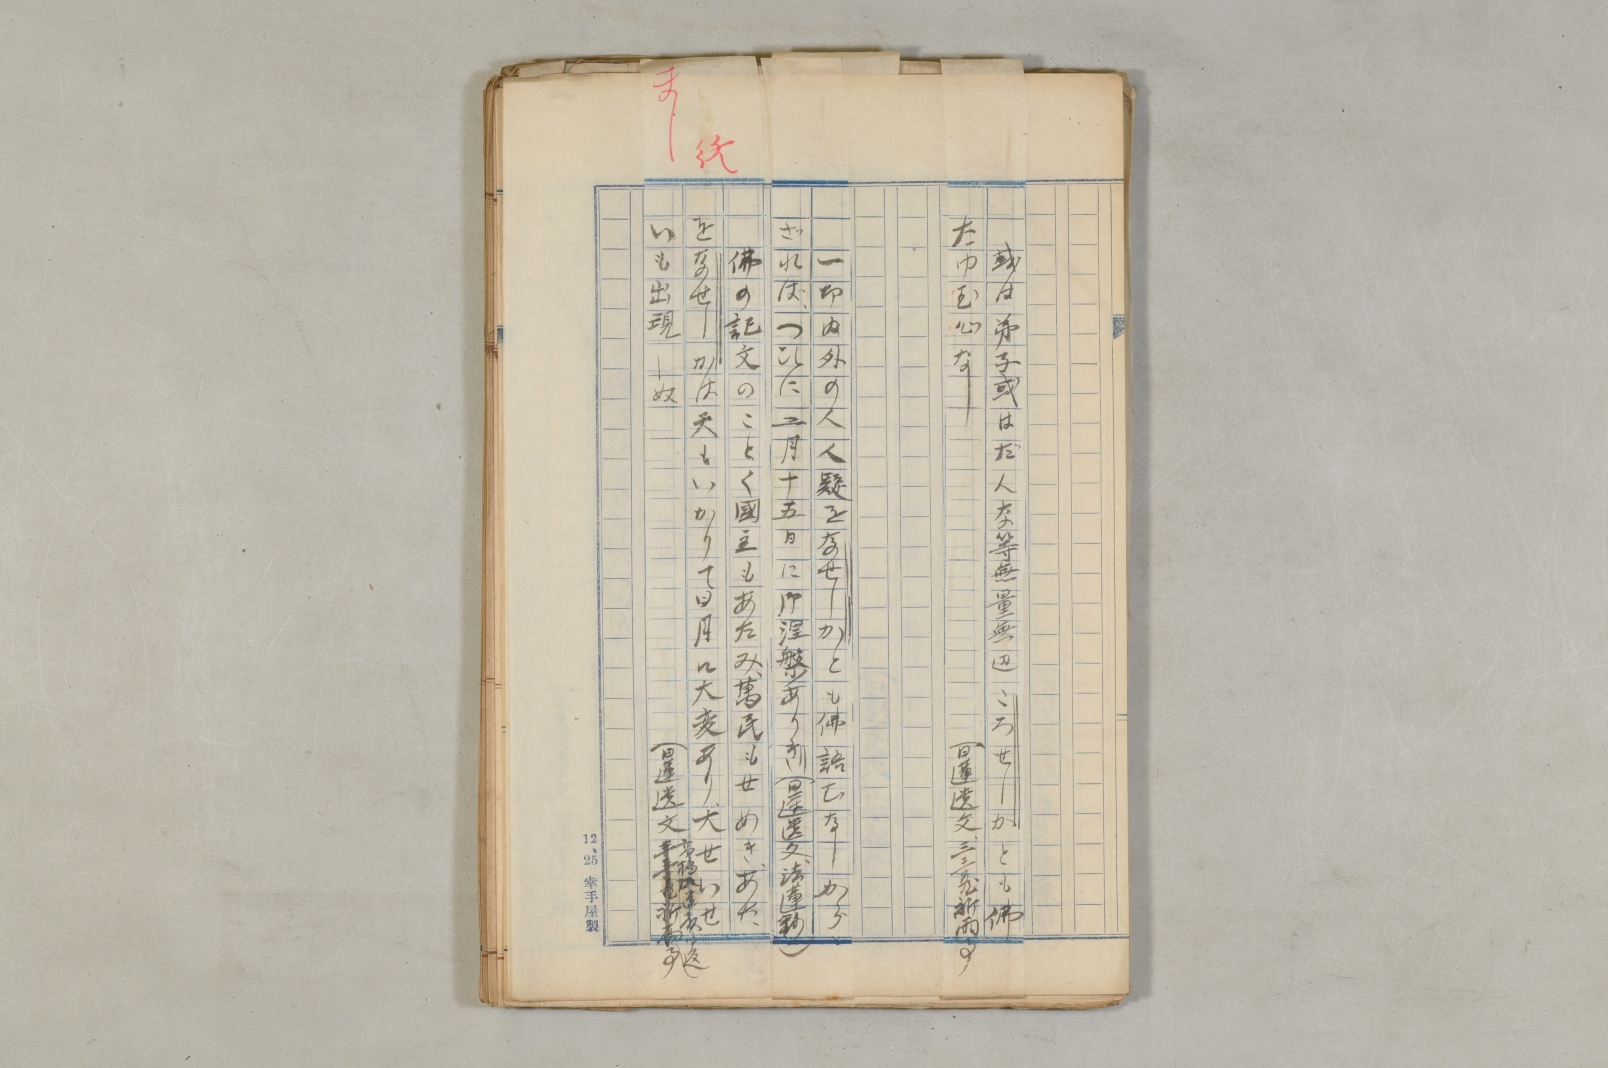 まし
続
或は弟子或はだ人な等無量無辺ころせしかとも佛
たゆむ心なし
(日蓮遺文、三三蔵祈雨事)
一切内外の人人疑をなせしかとも佛語むなしから
ざれば、つひに二月十五日に御涅槃ありき(日蓮遺文、法蓮鈔)
佛の記文のことく國主もあたみ、萬民もせめき、あた
をなせしかは天もいかりて日月に大変あり、大せいせ
いも出現しぬ
(日蓮遺文
12、25 幸手屋製